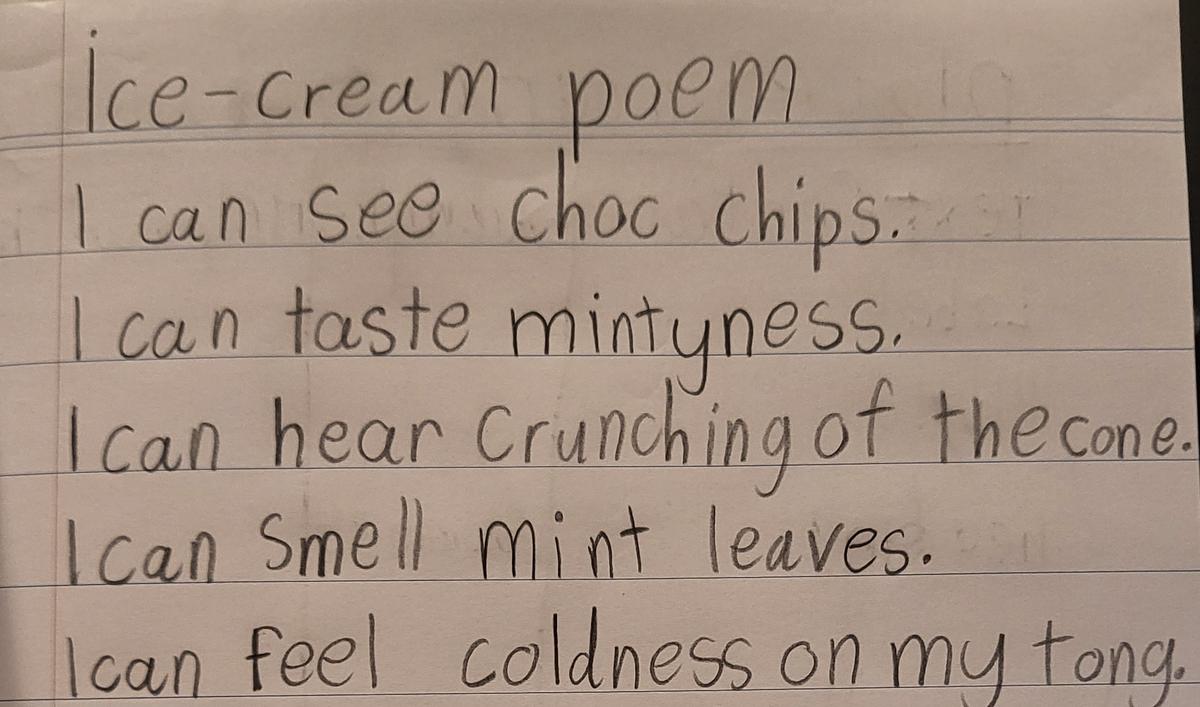 ice-cream poem
I can see choc chips.
I can taste mintyness.
I can hear crunching of the cone.
I can smell mint leaves.
I can feel coldness on my tong.